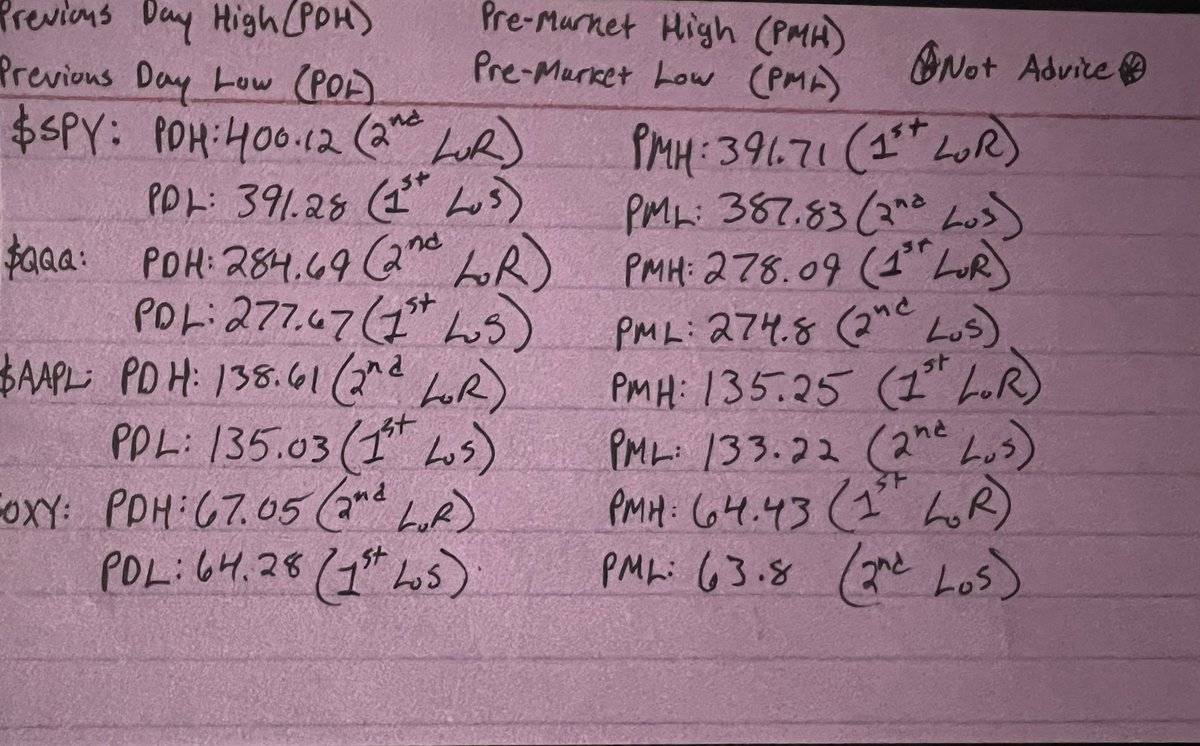 Previous Day High (PDH) Pre-Market High (PMH)
Previous Day Low (PDL) Pre-Market Low (PML) Not Advice
$SPY: PDH: 400.12 (2nd LoR) PMH: 391.71 (1st LoR)
PDL: 391.28 (1st LoS) PML: 387.83 (2nd LoS)
$QQQ: PDH: 284.69 (2nd LoR) PMH: 278.09 (1st LoR)
PDL: 277.67 (1st LoS) PML: 274.8 (2nd LoS)
$AAPL: PDH: 138.61 (2nd LoR) PMH: 135.25 (1st LoR)
PDL: 135.03 (1st LoS) PML: 133.22 (2nd LoS)
OXY: PDH: 67.05 (2nd LoR) PMH: 64.43 (1st LoR)
PDL: 64.28 (1st LoS) PML: 63.8 (2nd LoS)